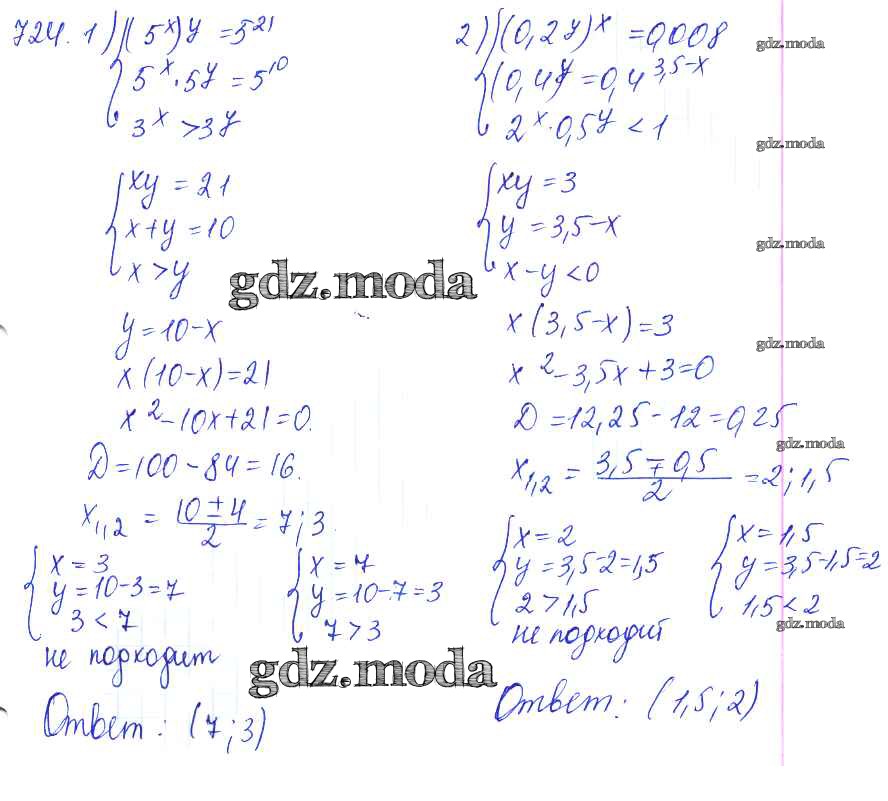 724. 1) (5^x)^y = 5^21
5^x · 5^y = 5^10
3^x > 3^y
xy = 21
x + y = 10
x > y
y = 10 - x
x(10 - x) = 21
x^2 - 10x + 21 = 0.
D = 100 - 84 = 16.
x1,2 = (10 ± 4)/2 = 7; 3.
x = 3
y = 10 - 3 = 7
3 < 7
не подходит
x = 7
y = 10 - 7 = 3
7 > 3
Ответ: (7; 3)
2) (0,2^y)^x = 0,008
(0,4)^y = 0,4^3,5-x
2^x · 0,5^y < 1
xy = 3
y = 3,5 - x
x - y < 0
x(3,5 - x) = 3
x^2 - 3,5x + 3 = 0
D = 12,25 - 12 = 0,25
x1,2 = (3,5 ∓ 0,5)/2 = 2; 1,5
x = 2
y = 3,5 - 2 = 1,5
2 > 1,5
не подходит
x = 1,5
y = 3,5 - 1,5 = 2
1,5 < 2
Ответ: (1,5; 2)
gdz.moda
gdz.moda
gdz.moda
gdz.moda
gdz.moda
gdz.moda
gdz.moda
gdz.moda